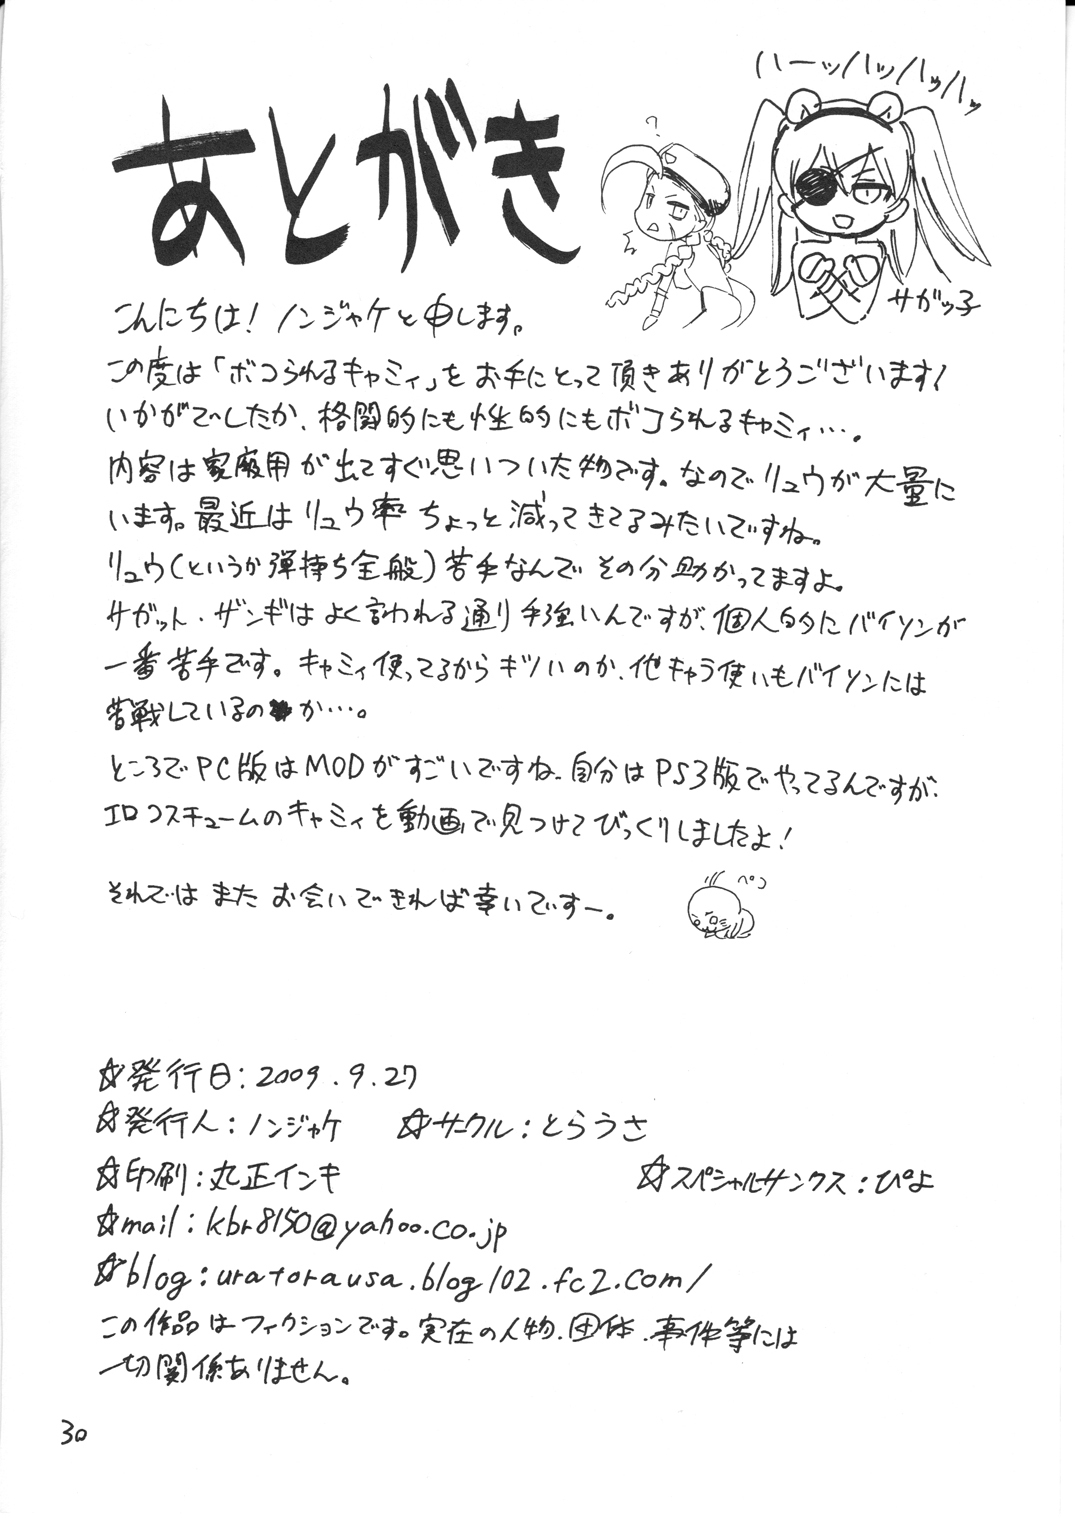 あとがき
ハーッハッハッハッ
?
サガッ子
こんにちは!ノンジャケと申します。
この度は「ボコられるキャミィ」をお手にとって頂きありがとうございます!
いかがでしたか、格闘的にも性的にもボコられるキャミィ…。
内容は家庭用が出てすぐ思いついた物です。なのでリュウが大量に
います。最近はリュウ率ちょっと減ってきてるみたいですね。
リュウ(というか弾持ち全般)苦手なんでその分助かってますよ。
サガット・ザンギはよく言われる通り手強いんですが、個人的にバイソンが
一番苦手です。キャミィ使ってるからキツいのか、他キャラ使いもバイソンには
苦戦しているのか…。
ところでPC版はMODがすごいですね、自分はPS3版でやってるんですが、
エロコスチュームのキャミィを動画で見つけてびっくりしましたよ!
それではまたお会いできれば幸いですー。
ペコ
☆発行日:2009.9.27
☆発行人:ノンジャケ ☆サークル:とらうさ
☆印刷:丸正インキ ☆スペシャルサンクス:ぴよ
☆mail:kbr8150@yahoo.co.jp
☆blog:uratorausa.blog102.fc2.com/
この作品はフィクションです。実在の人物、団体、事件等には
一切関係ありません。
30